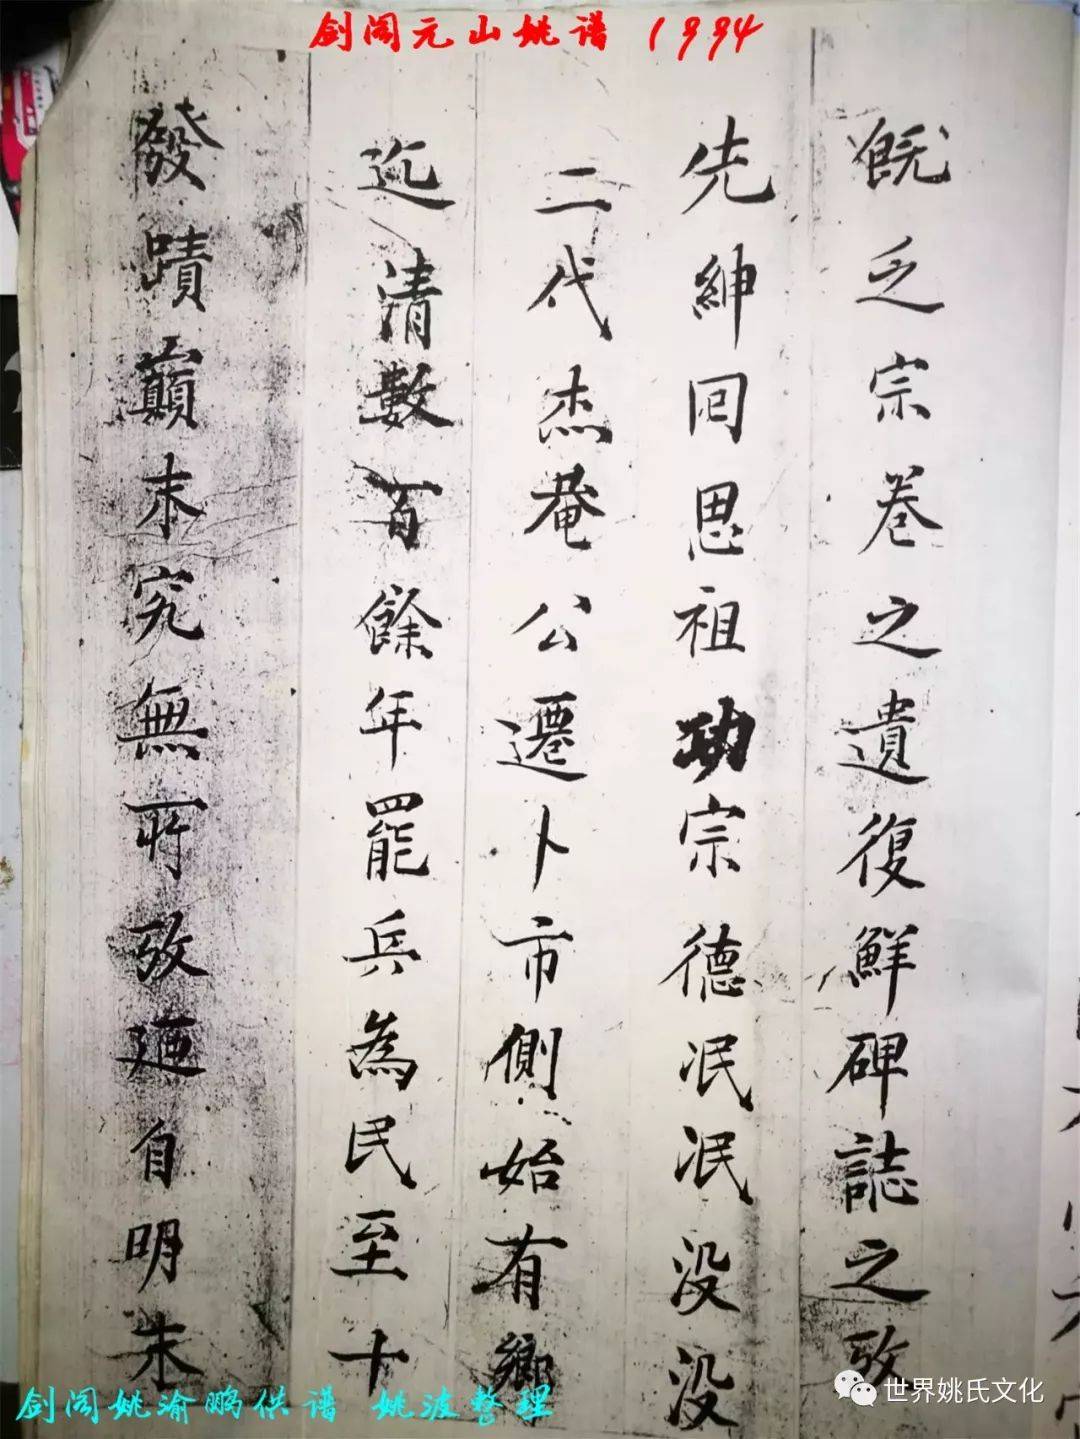 剑阁元山姚谱 1994
發蹟巔末究無所攷廼自明末
迄清數百餘年罷兵為民至十
二代杰菴公遷卜市側始有鄉
先紳囘思祖功宗德泯泯没没
既乏宗卷之遺復鮮碑誌之攷
剑阁姚渝鹏供谱 姚波整理
世界姚氏文化